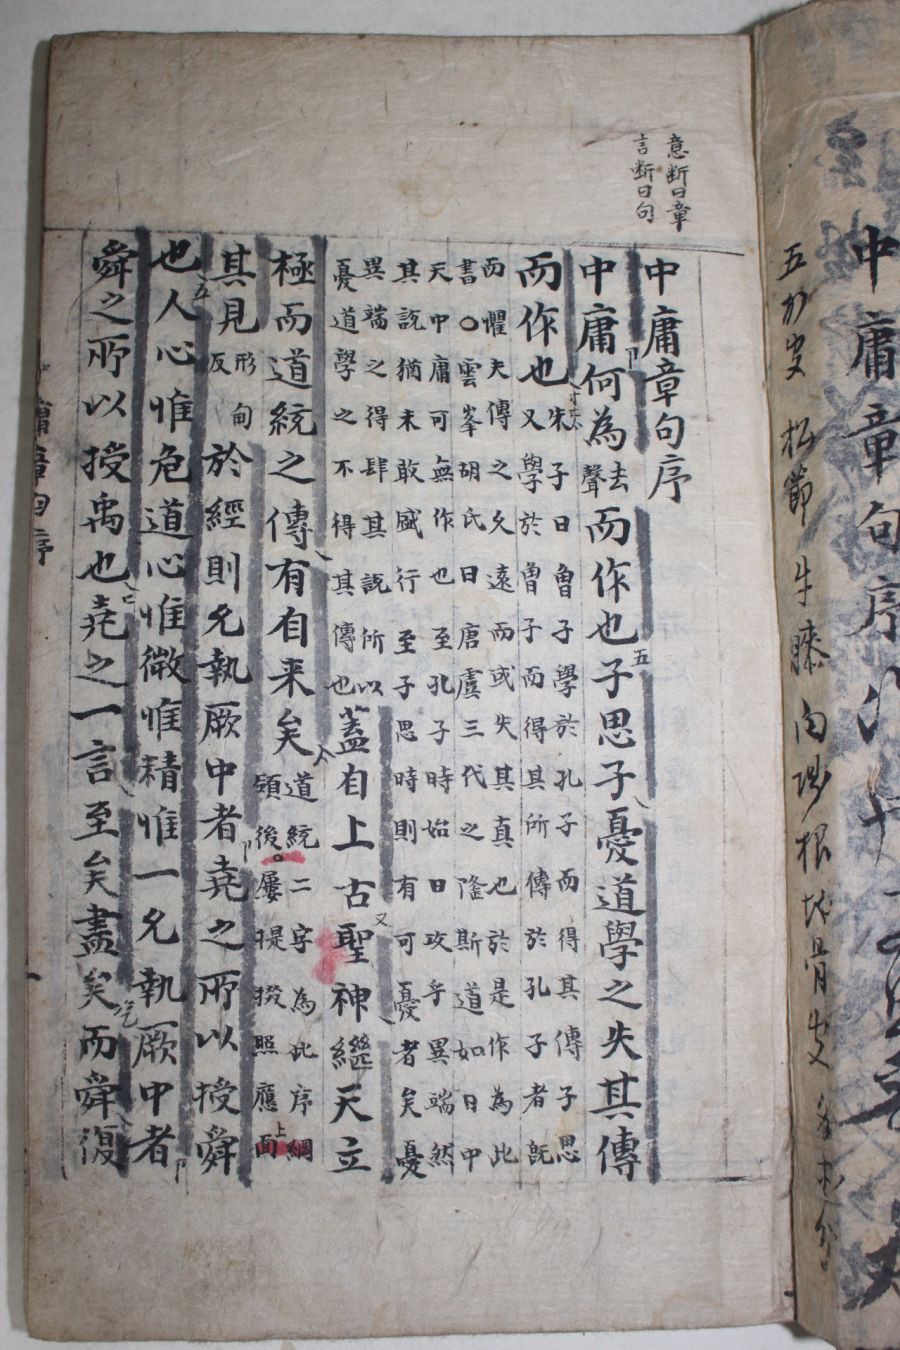 中庸章句序
五加皮 松節 牛膝
意断曰章
言断曰句
中庸章句序
中庸何為去聲而作也子思子憂道學之失其傳
而作也
朱子曰曽子學於孔子而得其傳子思
又學於曽子而得其所傳於孔子者既
而懼夫傳之久遠而或失其真也於是作為此
書○雲峯胡氏曰唐虞三代之隆斯道如日中
天中庸可無作也至孔子時始曰攻乎異端然
其說猶未敢盛行至子思時則有可憂者矣憂
異端之得肆其說所以
憂道學之不得其傳也
盖自上古聖神繼天立
極而道統之傳有自来矣
道統二字為此序綱
領後屢提掇照應面
其見形甸反於經則允執厥中者堯之所以授舜
也人心惟危道心惟微惟精惟一允執厥中者
舜之所以授禹也堯之一言至矣盡矣而舜復
庸章句序